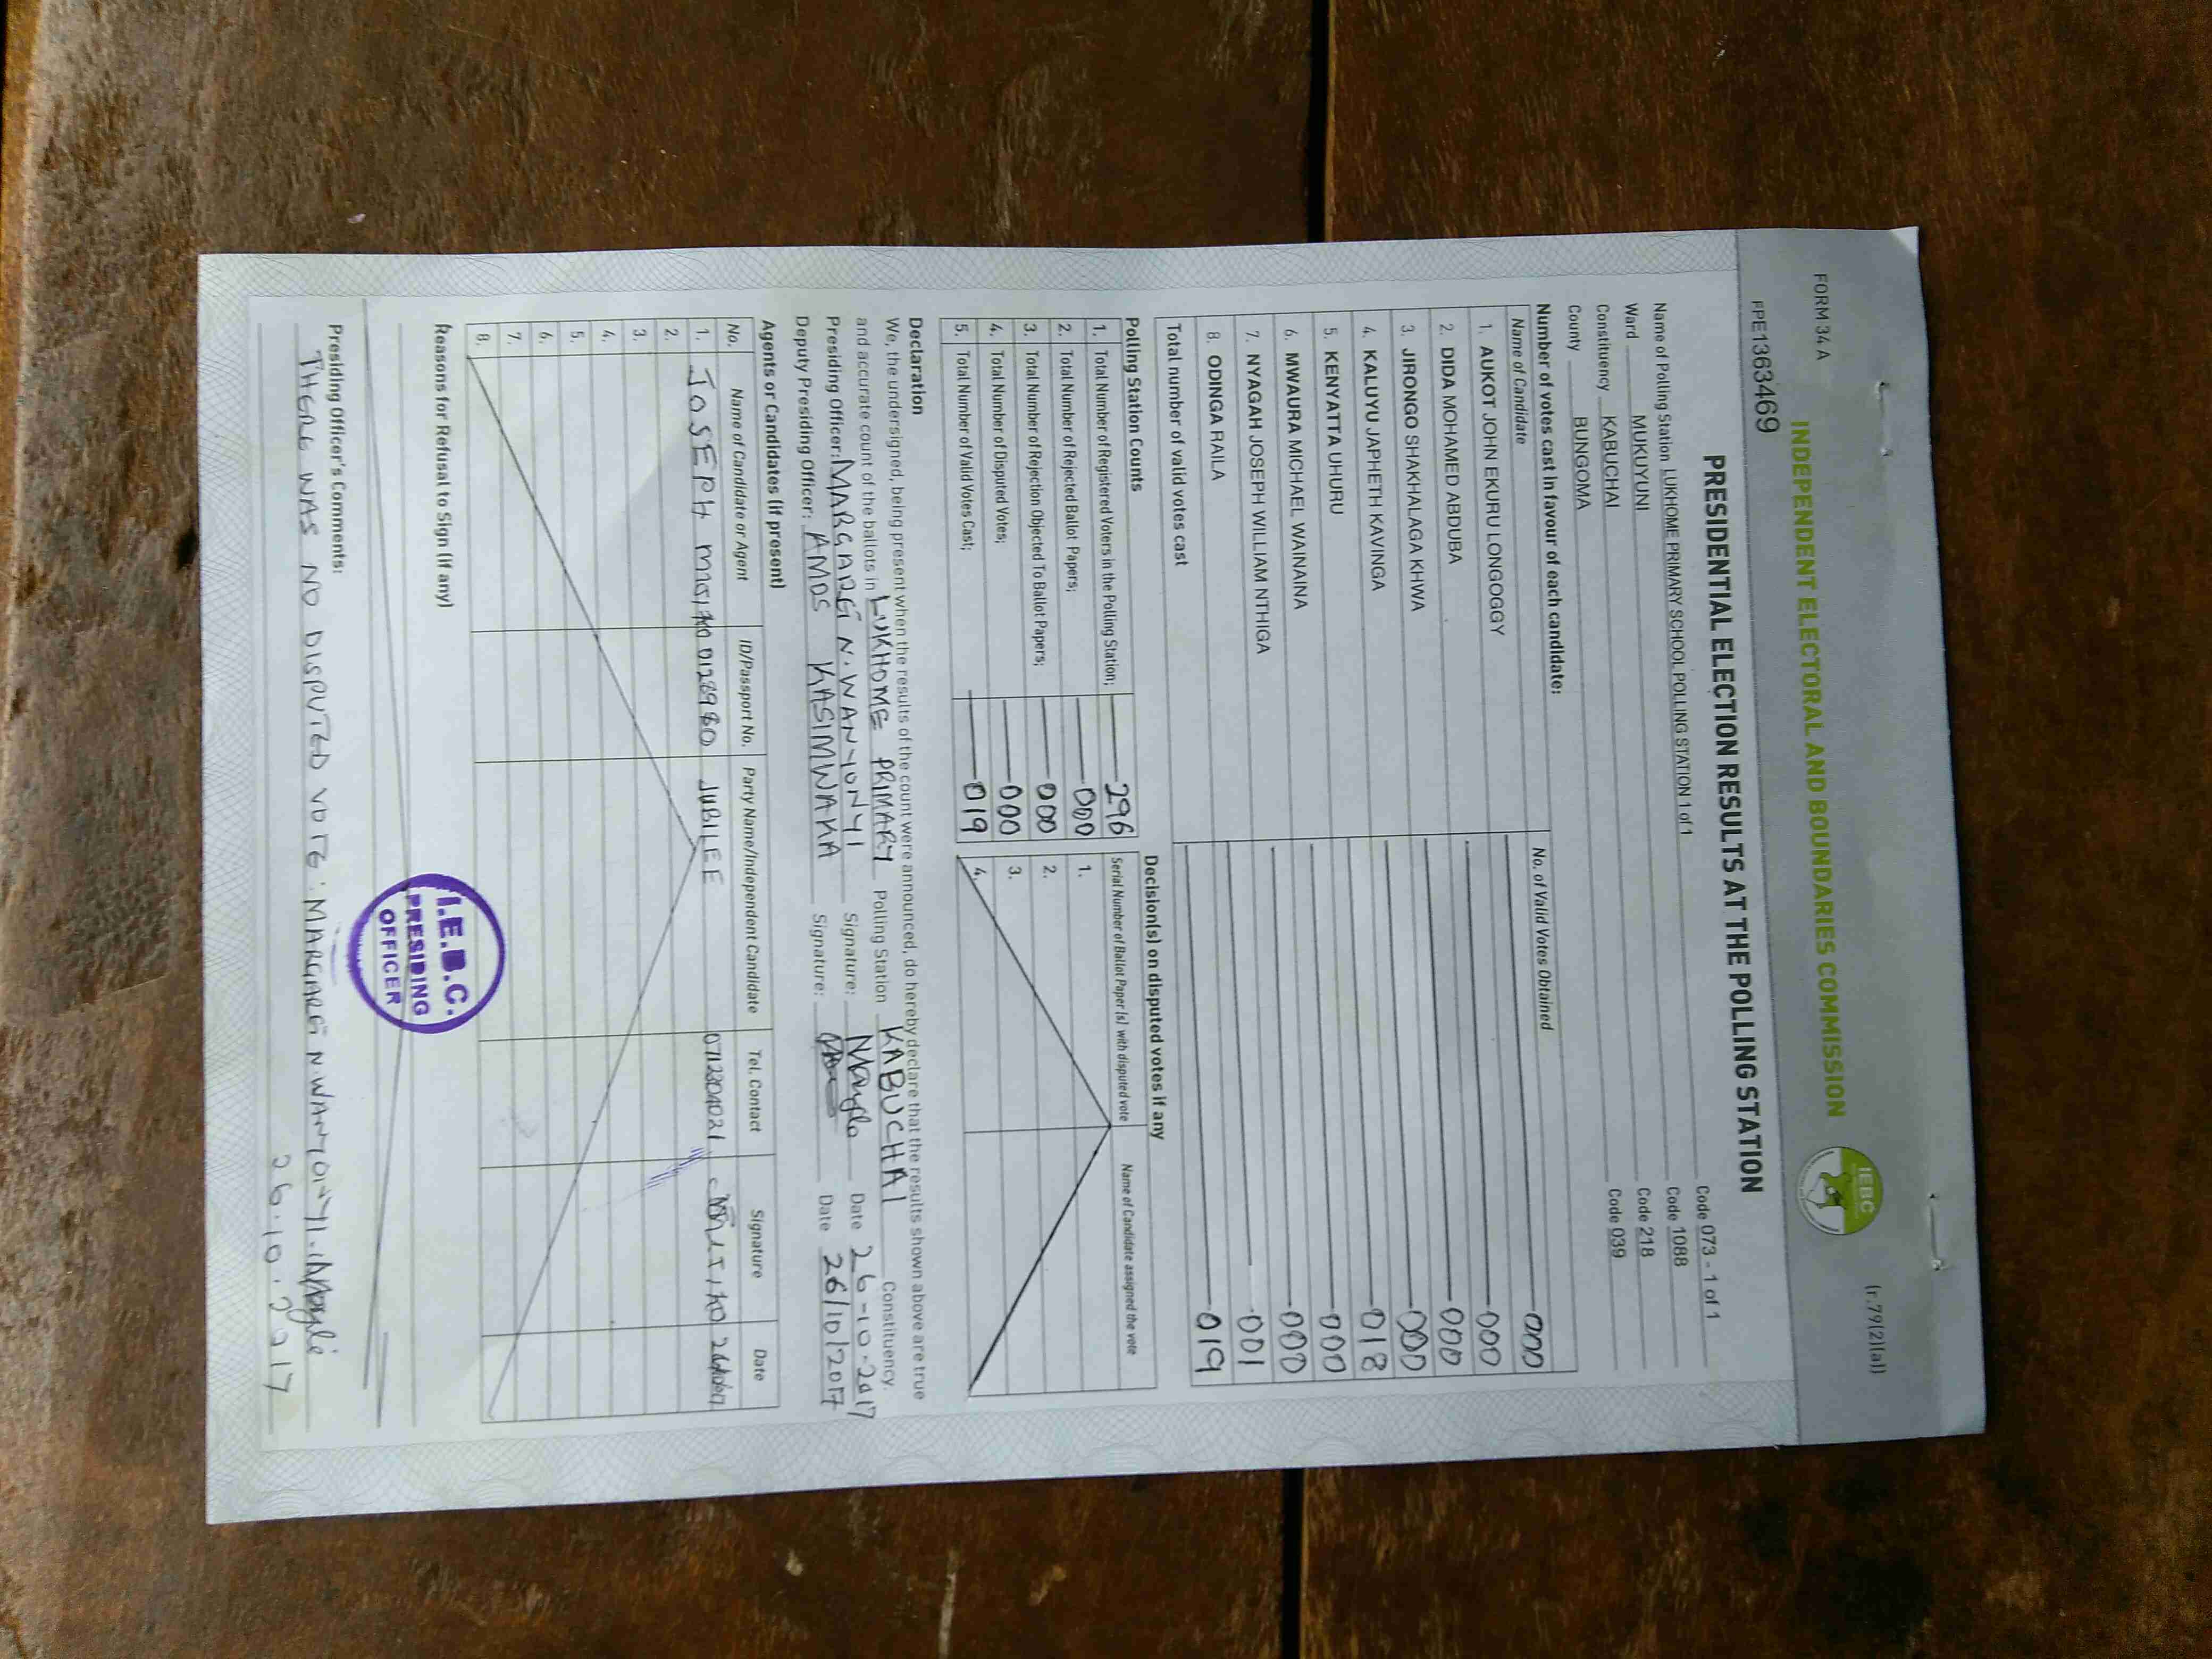 FORM 34 A
(r.79(2)(a))
INDEPENDENT ELECTORAL AND BOUNDARIES COMMISSION
IEBC
PPE13634​69
PRESIDENTIAL ELECTION RESULTS AT THE POLLING STATION
Name of Polling Station LUKHOME PRIMARY SCHOOL POLLING STATION 1 of 1 Code 073 - 1 of 1
Ward MUKUYUNI Code 1088
Constituency KABUCHAI Code 218
County BUNGOMA Code 039
Number of votes cast in favour of each candidate:
Name of Candidate No. of Valid Votes Obtained
1. AUKOT JOHN EKURU LONGOGGY 000
2. DIDA MOHAMED ABDUBA 000
3. JIRONGO SHAKHALAGA KHWA 000
4. KALUYU JAPHETH KAVINGA 000
5. KENYATTA UHURU 018
6. MWAURA MICHAEL WAINAINA 000
7. NYAGAH JOSEPH WILLIAM NTHIGA 000
8. ODINGA RAILA 001
Total number of valid votes cast 019
Polling Station Counts
1. Total Number of Registered Voters in the Polling Station; 296
2. Total Number of Rejected Ballot Papers; 000
3. Total Number of Rejection Objected To Ballot Papers; 000
4. Total Number of Disputed Votes; 000
5. Total Number of Valid Votes Cast; 019
Decision(s) on disputed votes if any
Serial Number of Ballot Paper(s) with disputed vote Name of Candidate assigned the vote
1.
2.
3.
4.
Declaration
We, the undersigned, being present when the results of the count were announced, do hereby declare that the results shown above are true
and accurate count of the ballots in LUKHOME PRIMARY Polling Station KABUCHAI Constituency.
Presiding Officer: MARGARET N. WANYONYI Signature: Date 26-10-2017
Deputy Presiding Officer: AMOS KASIMWAKA Signature: Date 26/10/2017
Agents or Candidates (if present)
No. Name of Candidate or Agent ID/Passport No. Party Name/Independent Candidate Tel. Contact Signature Date
1. JOSEPH JUBILEE
2.
3.
4.
5.
6.
7.
8.
Reasons for Refusal to Sign (if any)
I.E.B.C.
PRESIDING
OFFICER
Presiding Officer's Comments:
THERE WAS NO DISPUTED VOTE: MARGARET N. WANYONYI.
26.10.2017